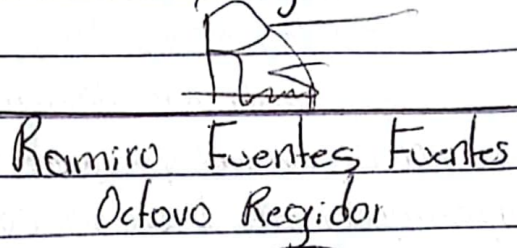 Ramiro Fuentes Fuentes
Octovo Regidor